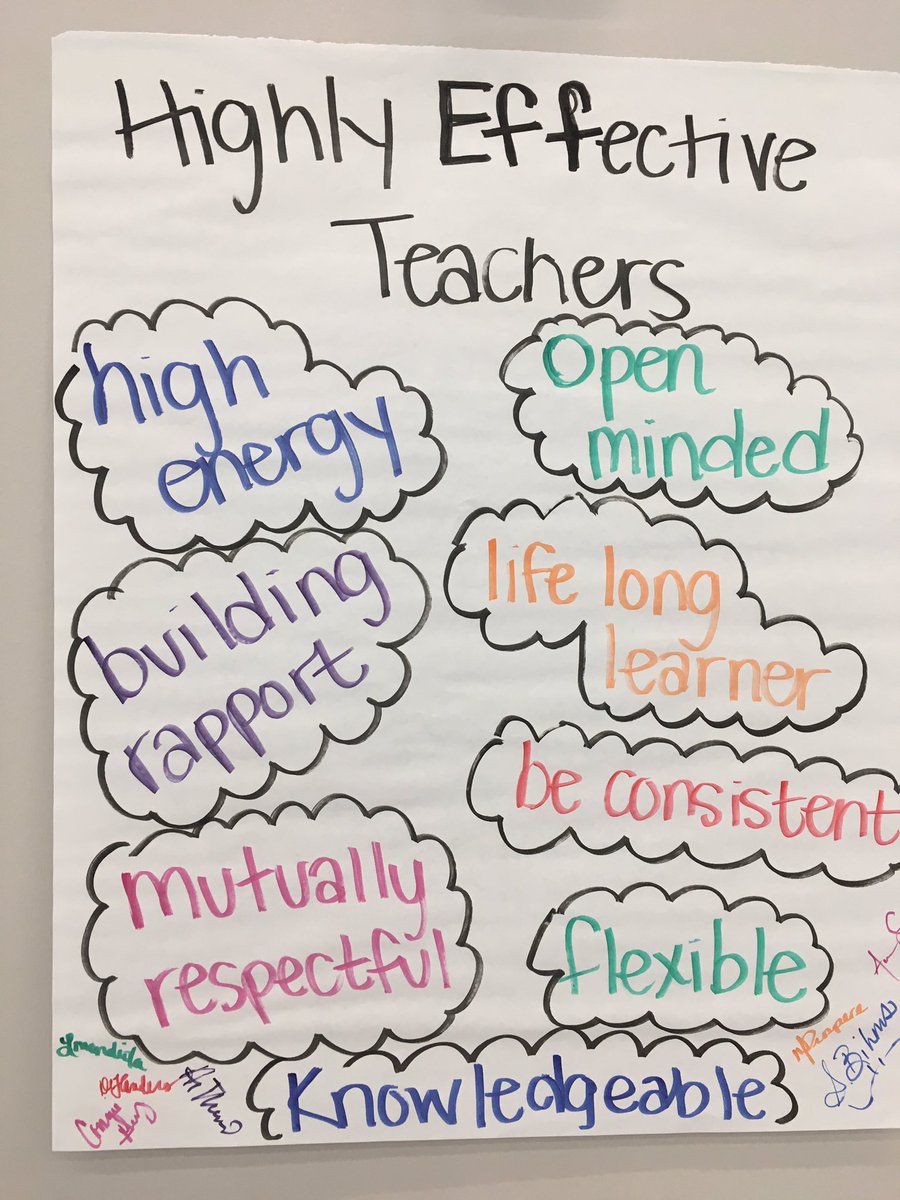 Highly Effective
Teachers
high
energy
Open
minded
building
rapport
life long
learner
be consistent
mutually
respectful
flexible
Knowledgeable